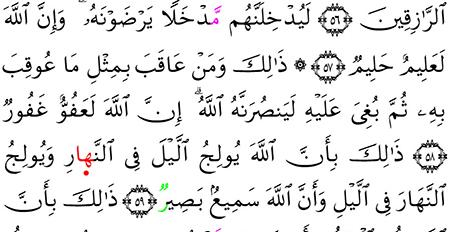 ٱلرَّٰزِقِينَ ٥٦ لَيُدْخِلَنَّهُم مَّدْخَلًا يَرْضَوْنَهُۥ ۗ وَإِنَّ ٱللَّهَ
لَعَلِيمٌ حَلِيمٌ ٥٧ ۞ ذَٰلِكَ وَمَنْ عَاقَبَ بِمِثْلِ مَا عُوقِبَ
بِهِۦ ثُمَّ بُغِيَ عَلَيْهِ لَيَنصُرَنَّهُ ٱللَّهُ ۗ إِنَّ ٱللَّهَ لَعَفُوٌّ غَفُورٌ
٥٨ ذَٰلِكَ بِأَنَّ ٱللَّهَ يُولِجُ ٱلَّيْلَ فِي ٱلنَّهارِ وَيُولِجُ
ٱلنَّهَارَ فِي ٱلَّيْلِ وَأَنَّ ٱللَّهَ سَمِيعٌۢ بَصِيرٌ ٥٩ ذَٰلِكَ بِأَنَّ